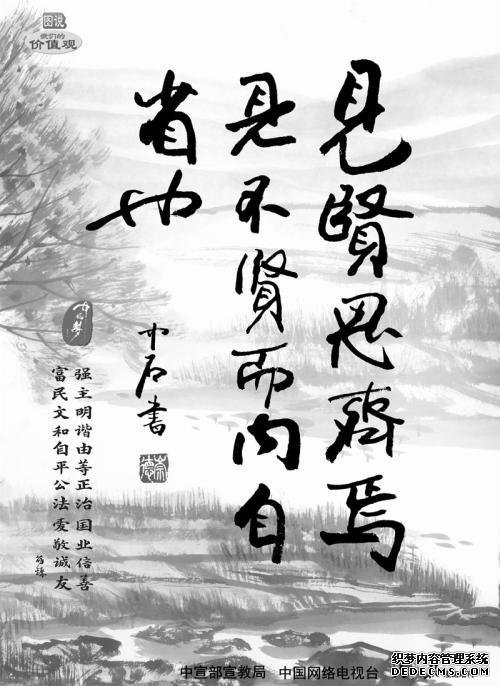 图说
我们的
价值观
見賢思齊焉
見不賢而内自
省也
中石書
崇德
中国梦
富强
民主
文明
和谐
自由
平等
公正
法治
爱国
敬业
诚信
友善
中宣部宣教局 中国网络电视台
织梦内容管理系统
DEDECMS.COM